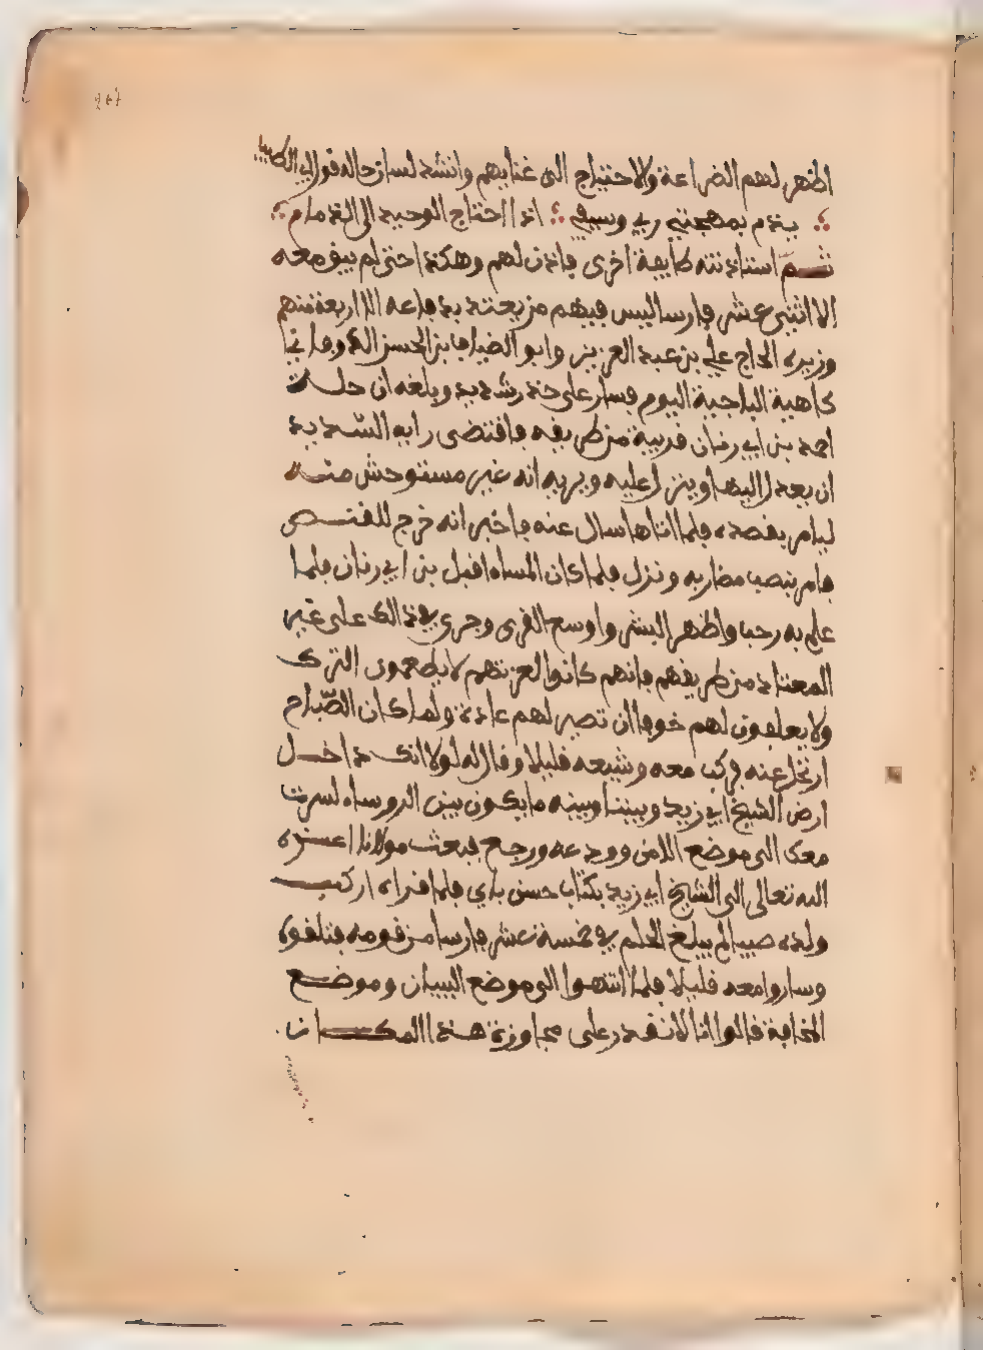 اظهر لهم الضراعة والاحتياج الى غنايهم وانشد لسان حاله قول ابي الطيب
يذم بمهجتي ربي وسيفي اذا احتاج الوحيد الى الذمام
ثم استاذنته طايفة اخرى فاذن لهم وهكذا حتى لم يبق معه
الا اثنى عشر فارسا ليس فيهم من يعتد بدفاعه الا اربعة منهم
وزيره الحاج علي بن عبد العزيز وابو الضياف بن الحسن
كاهية الباجية اليوم فسار على حذر شديد وبلغه ان حلة
احمد بن ابي رنان قريبة من طريقه فاقتضى رايه السديد
ان يعدل اليها وينزل عليه ويريه انه غير مستوحش منه
ليامر بقصده فلما اتاها سال عنه فاخبر انه خرج للقنص
فامر بنصب مضاربه ونزل فلما كان المساء اقبل بن ابي رنان فلما
علم به رحب واظهر البشر واوسع القرى وجرى في ذالك على غير
المعتاد من طريقهم فانهم كانوا لعزتهم لا يطعمون الترك
ولا يعلفون لهم خوفا ان تصير لهم عادة ولما كان الصباح
ارتحل عنه فركب معه وشيعه قليلا وقال له لولا انك داخل
ارض الشيخ ابي زيد وبيننا وبينه ما يكون بين الروساء لسرت
معك الى موضع الامن وودعه ورجع فبعث مولانا اعزه
الله تعالى الى الشايخ ابي زيد بكتاب حسن باي فلما قراه اركب
ولده صبيا لم يبلغ الحلم في خمسة عشر فارسا من قومه فتلقوه
وساروا معه قليلا فلما انتهوا الى موضع البيبان وموضع
المخافة قالوا انا لا نقدر على مجاوزة هذا المكان